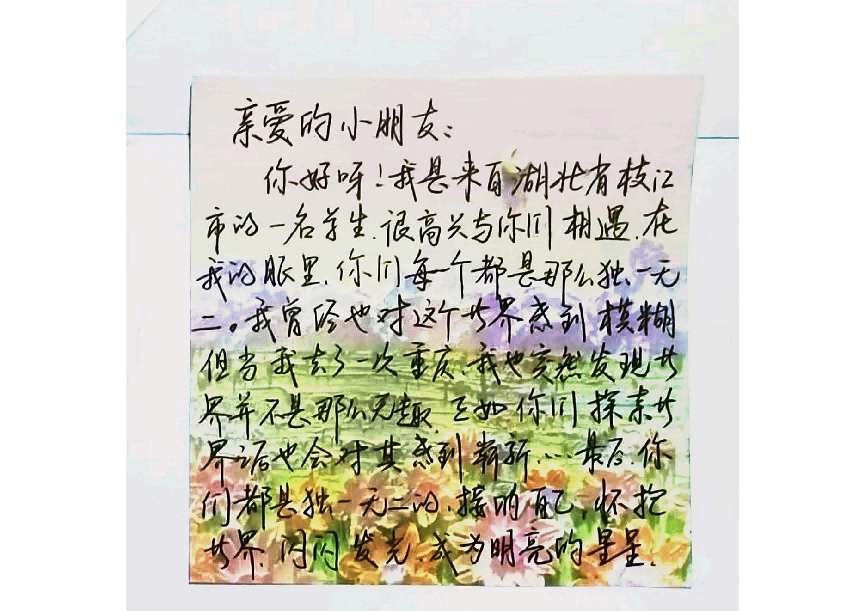 亲爱的小朋友：
你好呀！我是来自湖北省枝江
市的一名学生.很高兴与你们相遇.在
我的眼里.你们每一个都是那么独一无
二。我曾经也对这个世界感到模糊
但当我去了一次重庆.我也突然发现世
界并不是那么无趣.正如你们探索世
界之后也会对其感到崭新....最后.你
们都是独一无二的.接的自己,怀抱
世界.闪闪发光.成为明亮的星星.